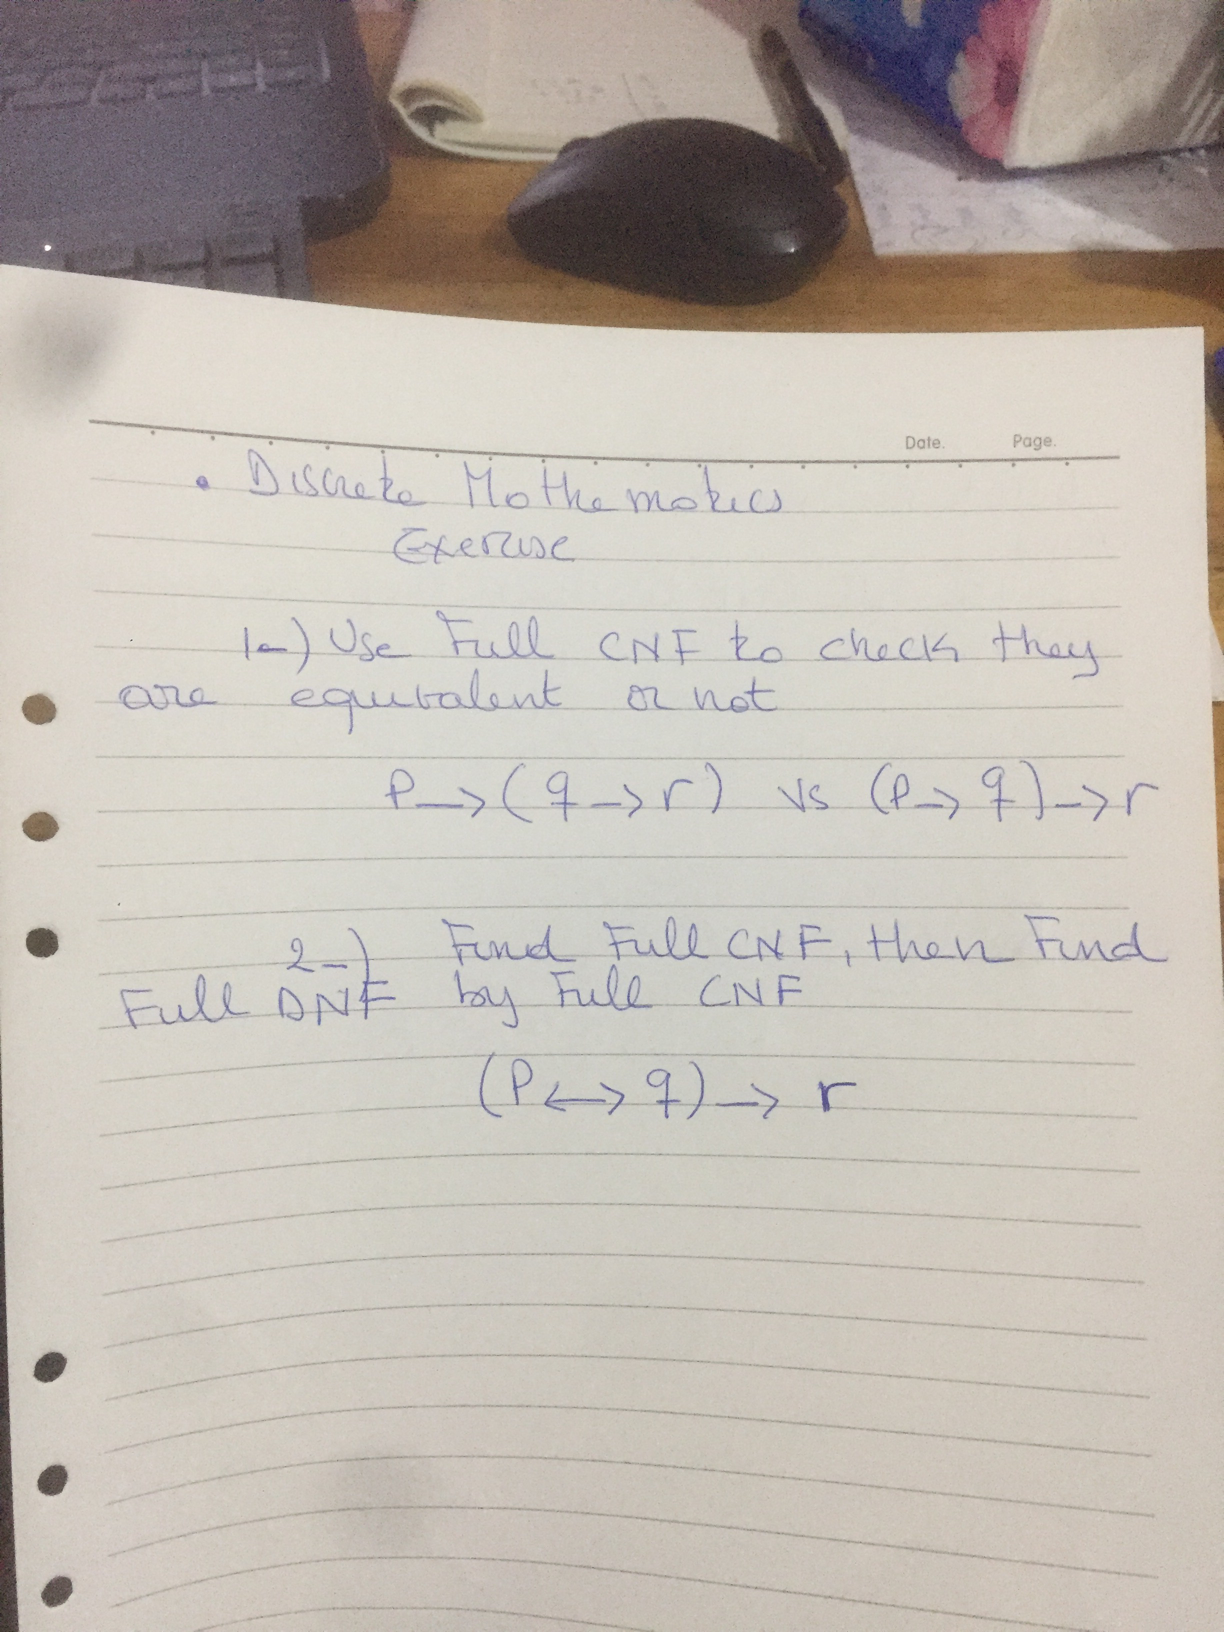 Date. Page.
• Discrete Mathematics
Exercise
1-) Use Full CNF to check they
are equivalent or not
P → (q → r) vs (P → q) → r
2-) Find Full CNF, then Find
Full DNF by Full CNF
(P ↔ q) → r